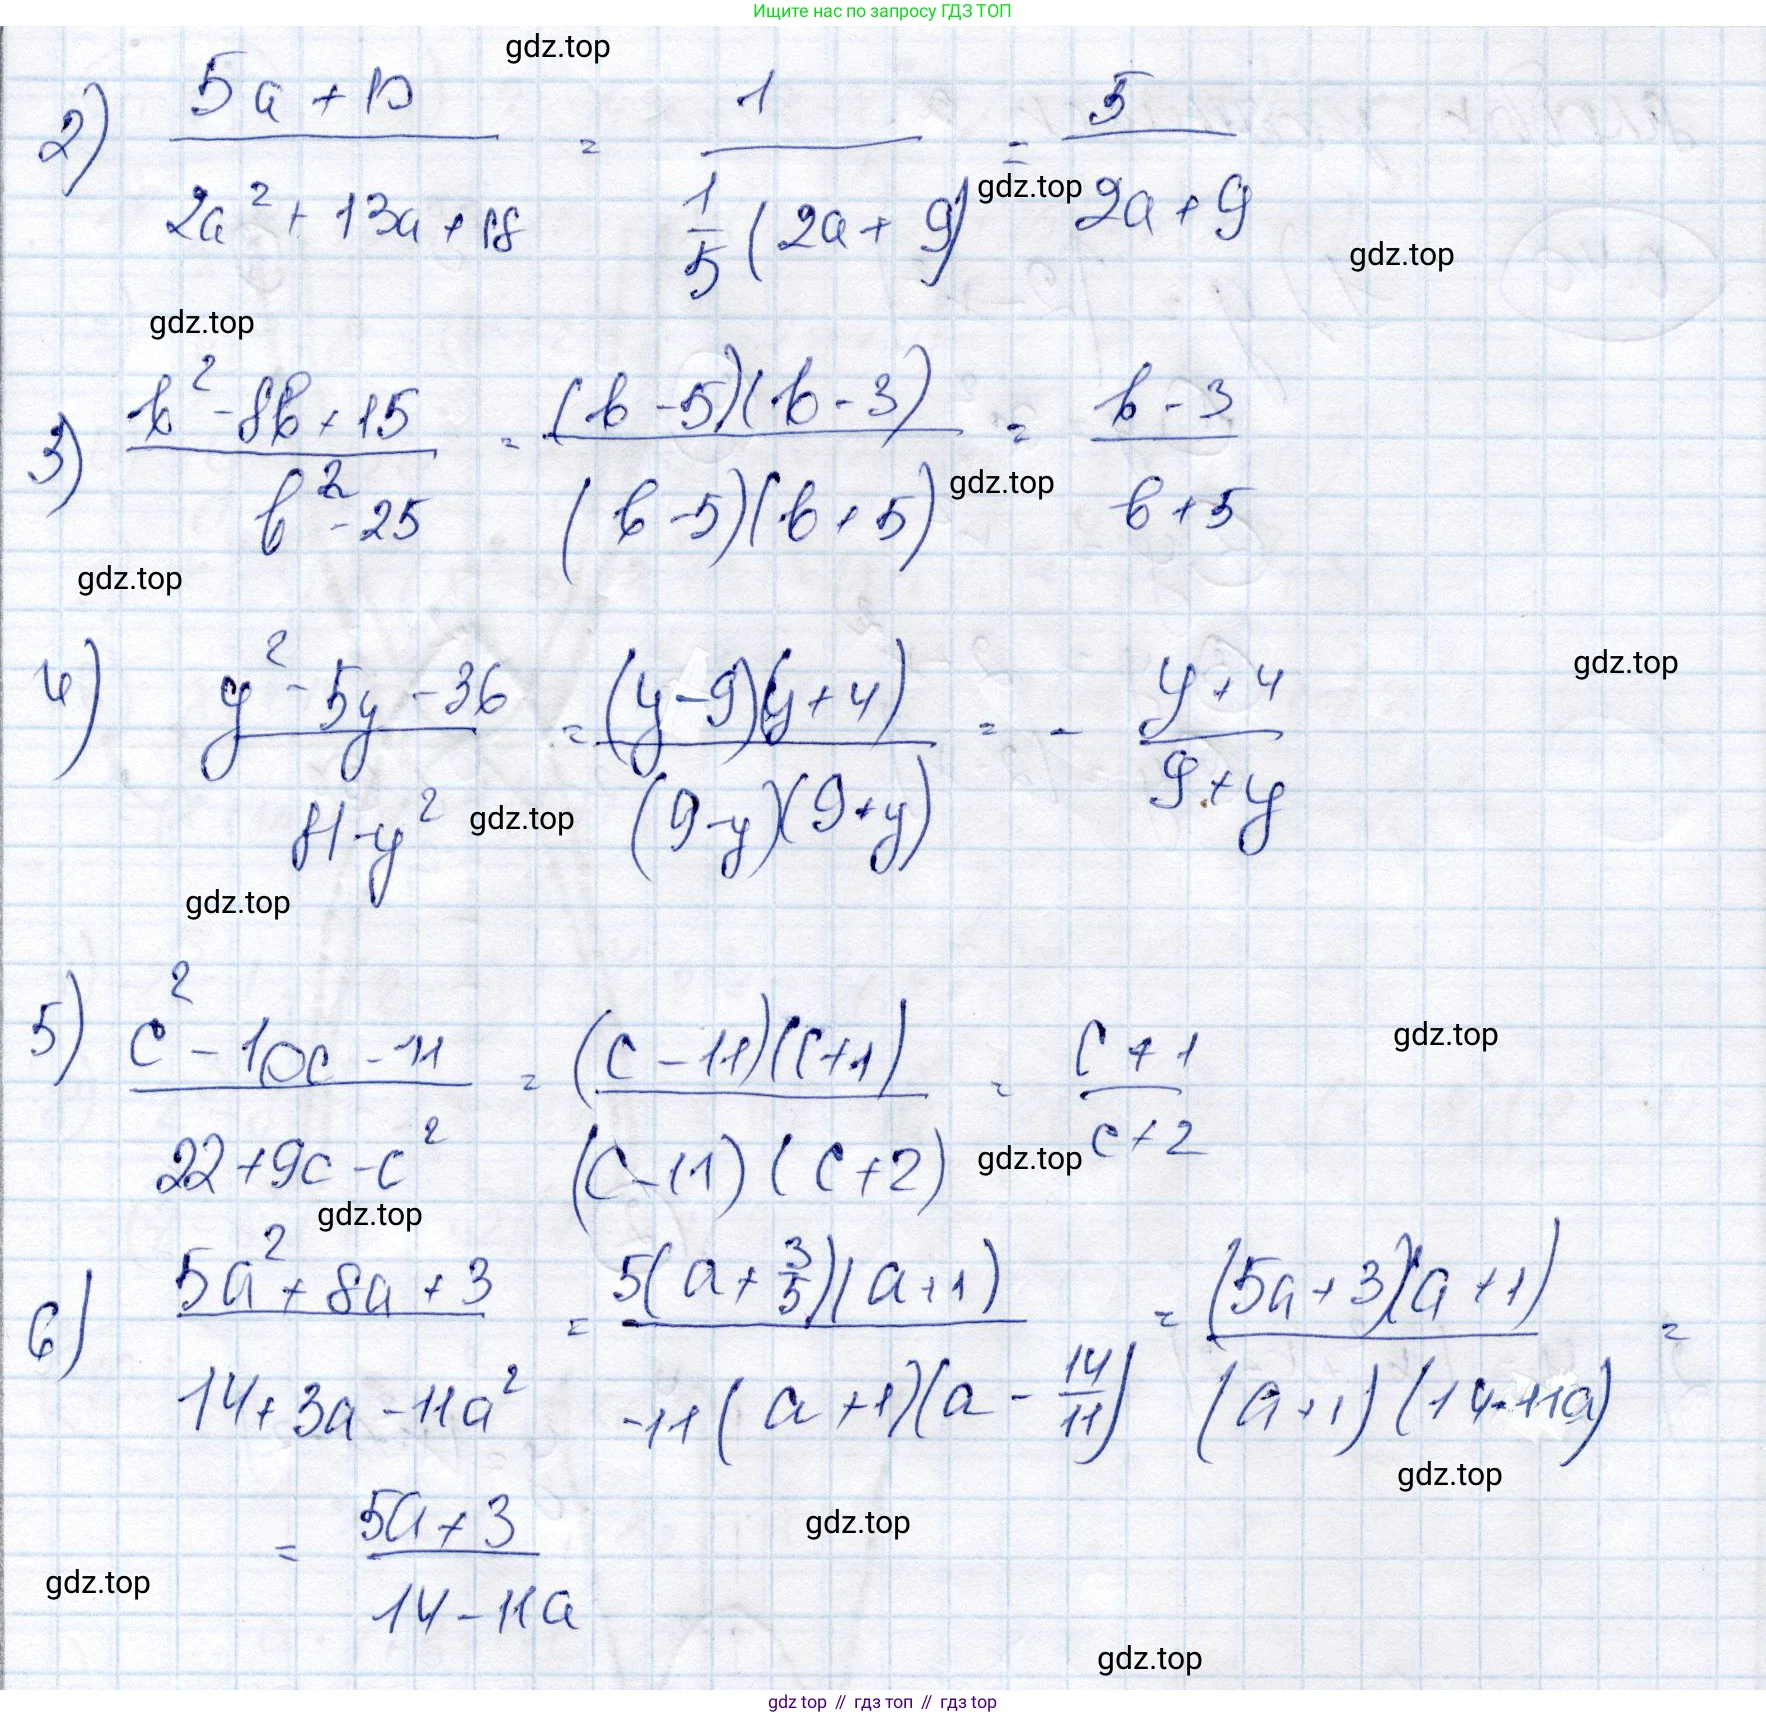 Ищите нас по запросу ГДЗ ТОП
gdz.top
2) (5a + 10)/(2a² + 13a + 18) = 1/(1/5 (2a + 9)) = 5/(2a + 9)
gdz.top
gdz.top
gdz.top
3) (b² - 8b + 15)/(b² - 25) = ((b - 5)(b - 3))/((b - 5)(b + 5)) = (b - 3)/(b + 5)
gdz.top
gdz.top
4) (y² - 5y - 36)/(81 - y²) = ((y - 9)(y + 4))/((9 - y)(9 + y)) = - (y + 4)/(9 + y)
gdz.top
gdz.top
gdz.top
5) (c² - 10c - 11)/(22 + 9c - c²) = ((c - 11)(c + 1))/((c - 11)(c + 2)) = (c + 1)/(c + 2)
gdz.top
gdz.top
gdz.top
6) (5a² + 8a + 3)/(14 + 3a - 11a²) = (5(a + 3/5)(a + 1))/(-11(a + 1)(a - 14/11)) = ((5a + 3)(a + 1))/((a + 1)(14 - 11a)) =
gdz.top
= (5a + 3)/(14 - 11a)
gdz.top
gdz.top
gdz.top
gdz top // гдз топ // гдз top